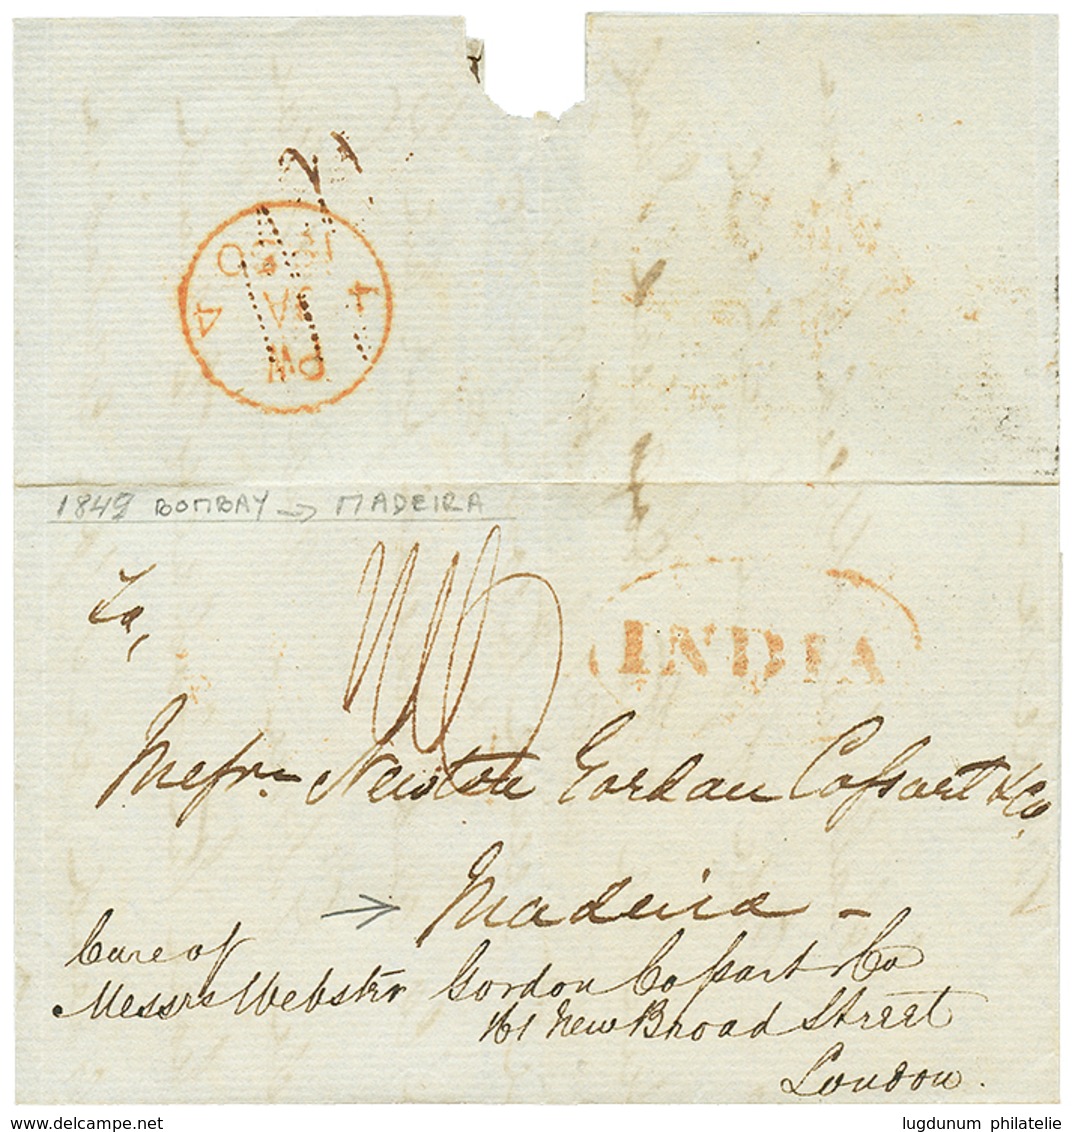 PW
4 JA 4
1850
1849 BOMBAY → MADEIRA
To,
INDIA
Messrs Newton Gordon Cossart & Co
Madeira –
Care of
Messrs Webster Gordon Cossart & Co
161 New Broad Street
London.
www.delcampe.net
lugdunum philatelie